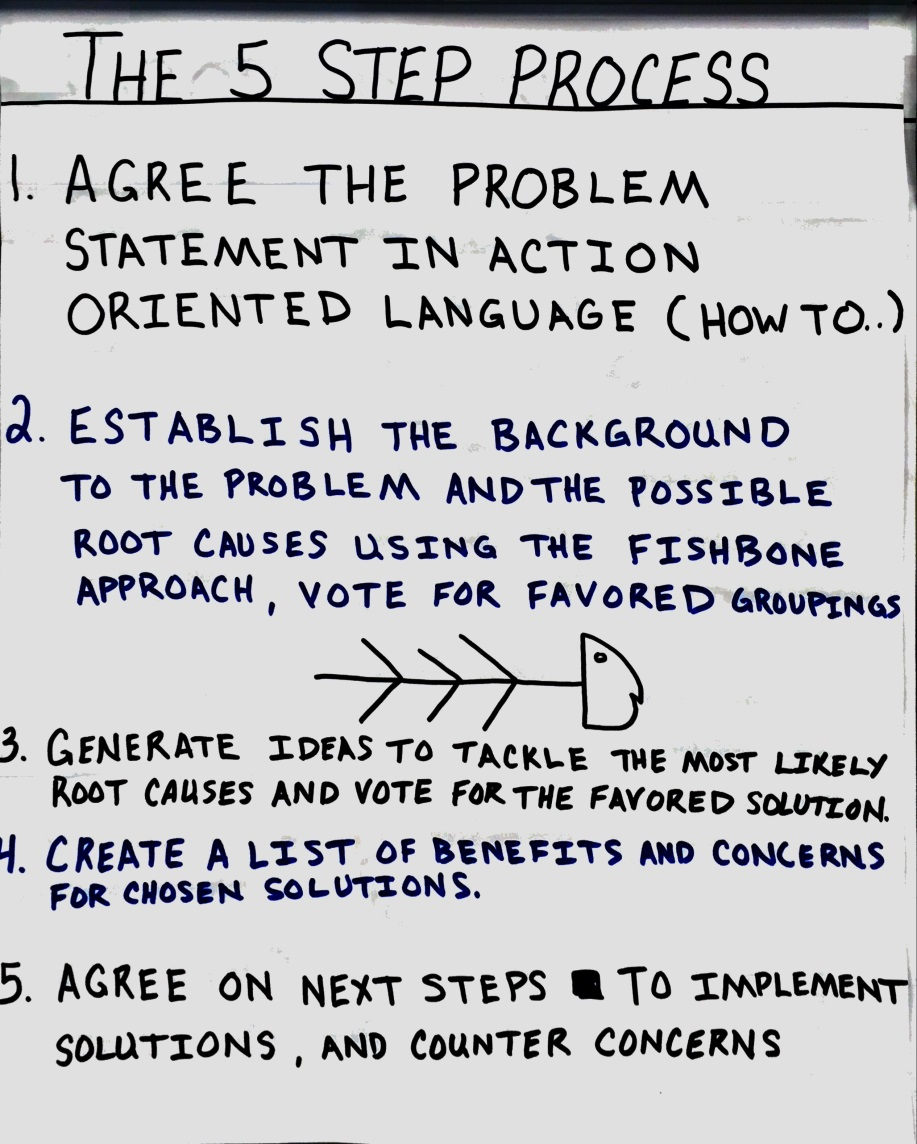 THE 5 STEP PROCESS
1. AGREE THE PROBLEM
STATEMENT IN ACTION
ORIENTED LANGUAGE (HOW TO..)
2. ESTABLISH THE BACKGROUND
TO THE PROBLEM AND THE POSSIBLE
ROOT CAUSES USING THE FISHBONE
APPROACH, VOTE FOR FAVORED GROUPINGS
3. GENERATE IDEAS TO TACKLE THE MOST LIKELY
ROOT CAUSES AND VOTE FOR THE FAVORED SOLUTION.
4. CREATE A LIST OF BENEFITS AND CONCERNS
FOR CHOSEN SOLUTIONS.
5. AGREE ON NEXT STEPS TO IMPLEMENT
SOLUTIONS, AND COUNTER CONCERNS